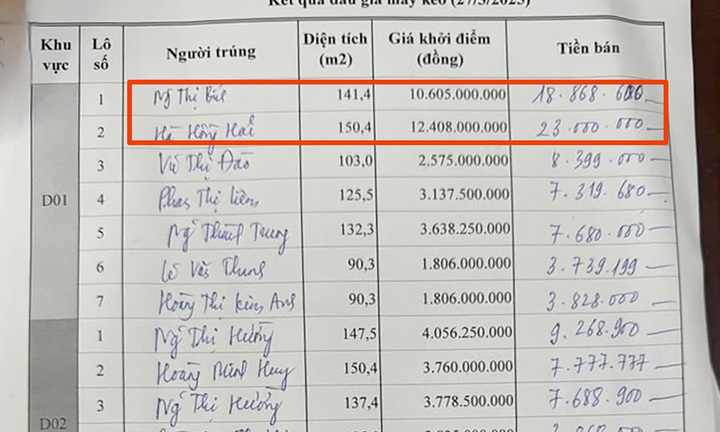 Kết quả đấu giá máy kéo (27/5/2025)
Khu vực Lô số Người trúng Diện tích (m2) Giá khởi điểm (đồng) Tiền bán
1 Ng Thị Bút 141,4 10.605.000.000 18.868.600
2 Hà Hồng Hải 150,4 12.408.000.000 23.000.000
3 Vũ Thị Đào 103,0 2.575.000.000 8.399.000
D01 4 Phan Thị Liên 125,5 3.137.500.000 7.319.680
5 Ng Thành Trung 132,3 3.638.250.000 7.680.000
6 Lê Văn Thung 90,3 1.806.000.000 3.739.199
7 Hoàng Thị Kim Anh 90,3 1.806.000.000 3.828.000
1 Ngô Thị Hường 147,5 4.056.250.000 9.268.900
2 Hoàng Minh Huy 150,4 3.760.000.000 7.777.777
3 Ngô Thị Hường 137,4 3.778.500.000 7.688.900
D02